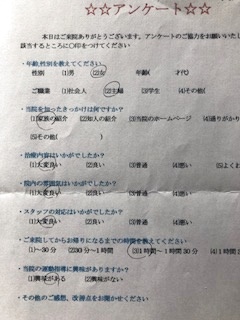 ☆☆アンケート☆☆
本日はご来院ありがとうございます。アンケートのご協力をお願いいたし
該当するところに○印をつけてください
・年齢,性別を教えてください
性別 (1)男 (2)女 年齢( 才代)
ご職業 (1)社会人 (2)主婦 (3)学生 (4)その他(
・当院を知ったきっかけは何ですか?
(1)家族の紹介 (2)知人の紹介 (3)当院のホームページ (4)通りがかり
(5)その他( )
・治療内容はいかがでしたか?
(1)大変良い (2)良い (3)普通 (4)悪い (5)よくわ
・院内の雰囲気はいかがでしたか?
(1)大変良い (2)良い (3)普通 (4)悪い
・スタッフの対応はいかがでしたか?
(1)大変良い (2)良い (3)普通 (4)悪い
・ご来院してからお帰りになるまでの時間を教えてください
(1)~30分 (2)30分~1時間 (3)1時間~1時間30分 (4)1時間
・当院の運動指導に興味がありますか?
(1)興味がある (2)興味がない
・その他のご感想、改善点をお聞かせください